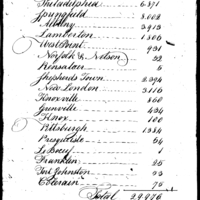 Philadelphia 6.871
Springfield 8.002
Albany 2.913
Lamberton 1.806
West Point 931
Norfolk & Nelson 52
Kinsalem 6
Shepherds Town 2.394
New London 3.116
Knoxville 860
Grenville 454
Knox 100
Pittsburgh 1384
Presquisle 64
Le Boeuf 1
Franklin 25
Fort Johnston 93
Colerain 75
Total 29.926